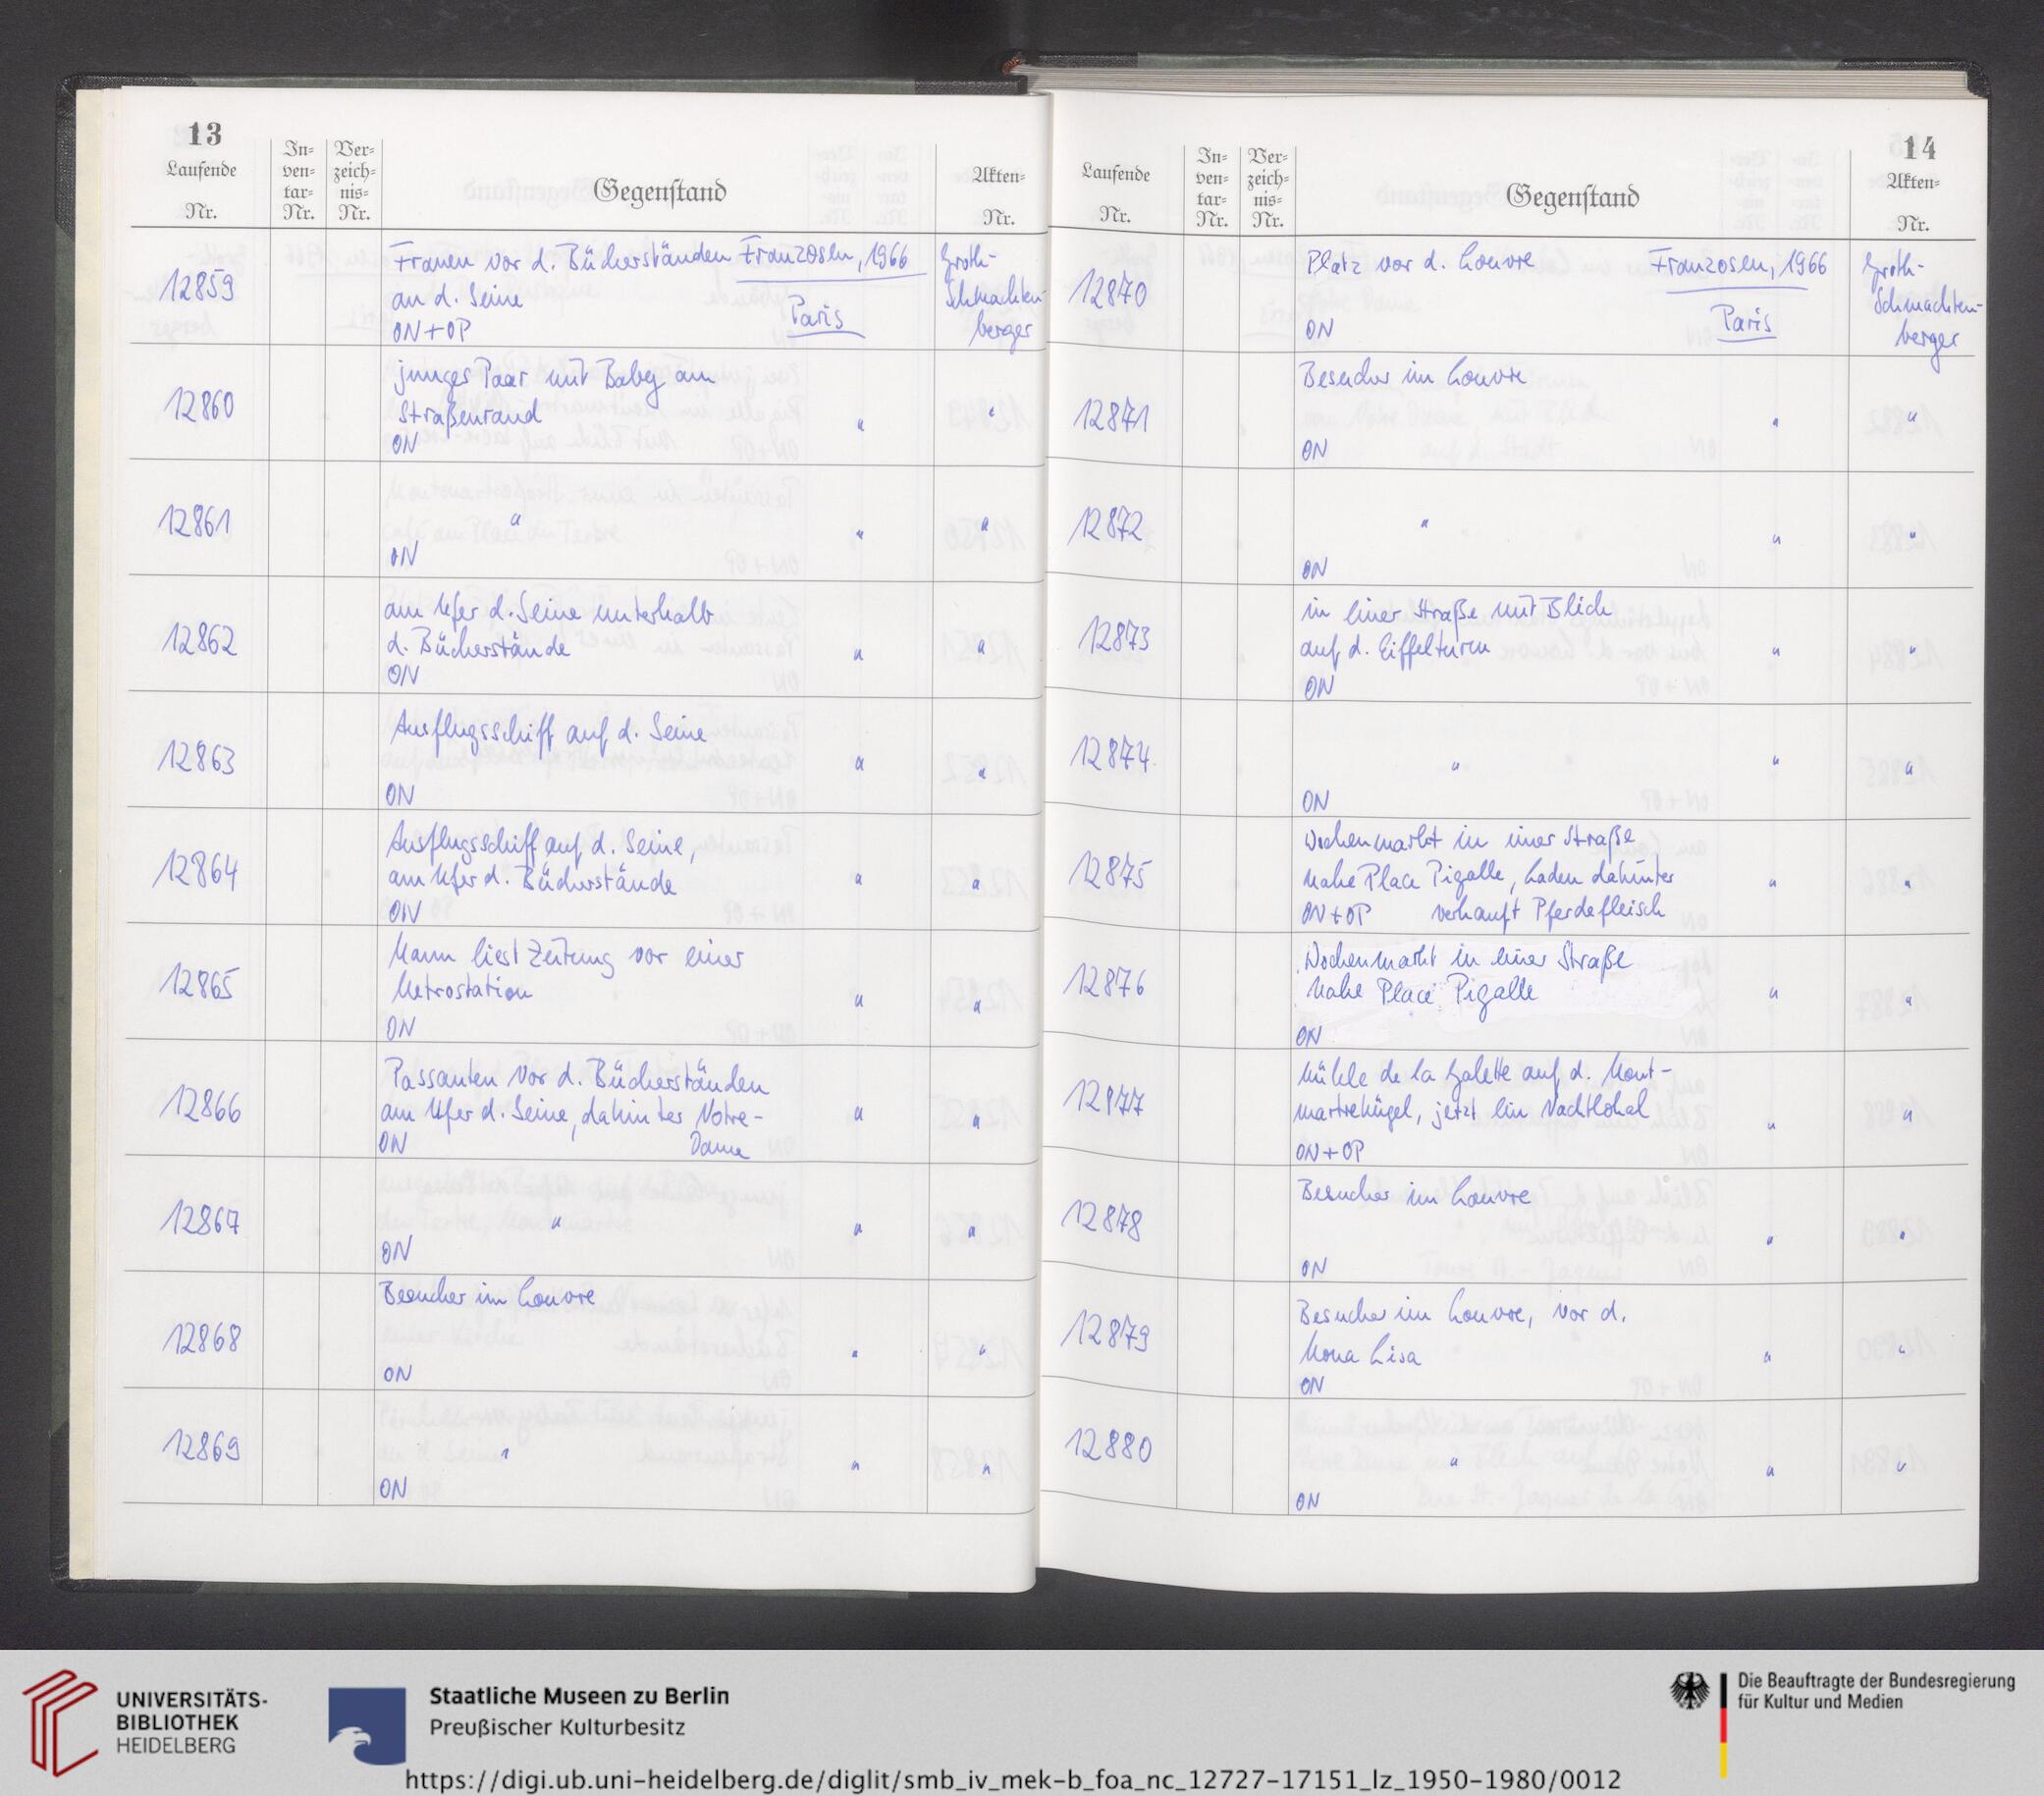 13
Laufende
Nr.
In-
ven-
tar-
Nr.
Ver-
zeich-
nis-
Nr.
Gegenstand
Akten-
Nr.
12859
Frauen vor d. Bücherständen Franzosen, 1966
an d. Seine
Paris
ON+OP
Groth-
Schmachten-
berger
12860
junges Paar mit Baby am
Straßenrand
"
"
ON
12861
"
"
"
ON
12862
am Ufer d. Seine unterhalb
d. Bücherstände
"
"
ON
12863
Ausflugsschiff auf d. Seine
"
"
ON
12864
Ausflugsschiff auf d. Seine,
am Ufer d. Bücherstände
"
"
ON
12865
Mann liest Zeitung vor einer
Metrostation
"
"
ON
12866
Passanten vor d. Bücherständen
am Ufer d. Seine, dahinter Notre-
"
"
ON Dame
12867
"
"
"
ON
12868
Besucher im Louvre
"
"
ON
12869
"
"
"
ON
14
Laufende
Nr.
In-
ven-
tar-
Nr.
Ver-
zeich-
nis-
Nr.
Gegenstand
Akten-
Nr.
12870
Platz vor d. Louvre Franzosen, 1966
Paris
ON
Groth-
Schmachten-
berger
12871
Besucher im Louvre
"
"
ON
12872
"
"
"
ON
12873
in einer Straße mit Blick
auf d. Eiffelturm
"
"
ON
12874
"
"
"
ON
12875
Wochenmarkt in einer Straße
nahe Place Pigalle, Laden dahinter
"
"
ON+OP verkauft Pferdefleisch
12876
Wochenmarkt in einer Straße
nahe Place Pigalle
"
"
ON
12877
Mühle de la Galette auf d. Mont-
martrehügel, jetzt ein Nachtlokal
"
"
ON+OP
12878
Besucher im Louvre
"
"
ON
12879
Besucher im Louvre, vor d.
Mona Lisa
"
"
ON
12880
"
"
"
ON
UNIVERSITÄTS-
BIBLIOTHEK
HEIDELBERG
Staatliche Museen zu Berlin
Preußischer Kulturbesitz
Die Beauftragte der Bundesregierung
für Kultur und Medien
https://digi.ub.uni-heidelberg.de/diglit/smb_iv_mek-b_foa_nc_12727-17151_lz_1950-1980/0012